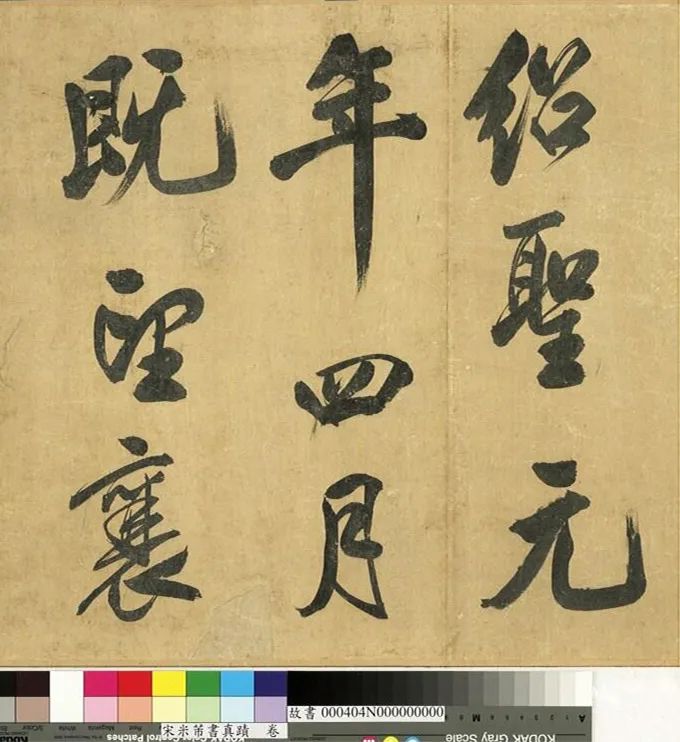 紹聖元
年四月
既望襄
故書 000404N000000000
宋米芾書真蹟 卷
KODAK Gray Scale
Kodak Color Control Patches
A
M